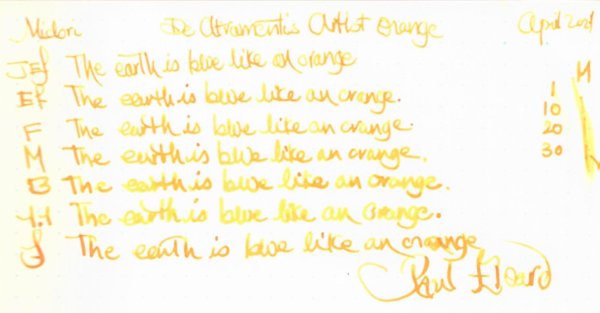 Midori De Atramentis Artist Orange April 2021
JEf The earth is blue like an orange
Ef The earth is blue like an orange. 1 M
F The earth is blue like an orange. 10
M The earth is blue like an orange. 20
B The earth is blue like an orange. 30
1.1 The earth is blue like an orange.
J The earth is blue like an orange
Paul Éluard